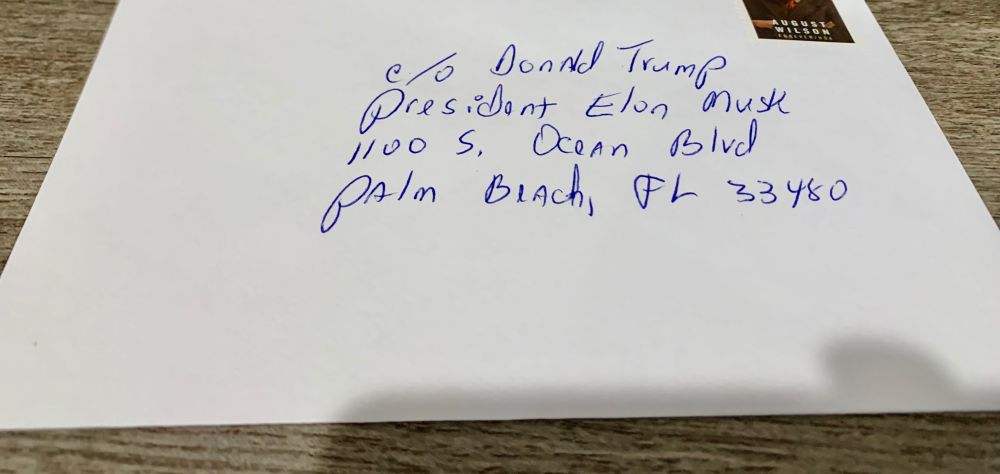 AUGUST
WILSON
FOREVER/USA
c/o Donald Trump
President Elon Musk
1100 S. Ocean Blvd
Palm Beach, FL 33480